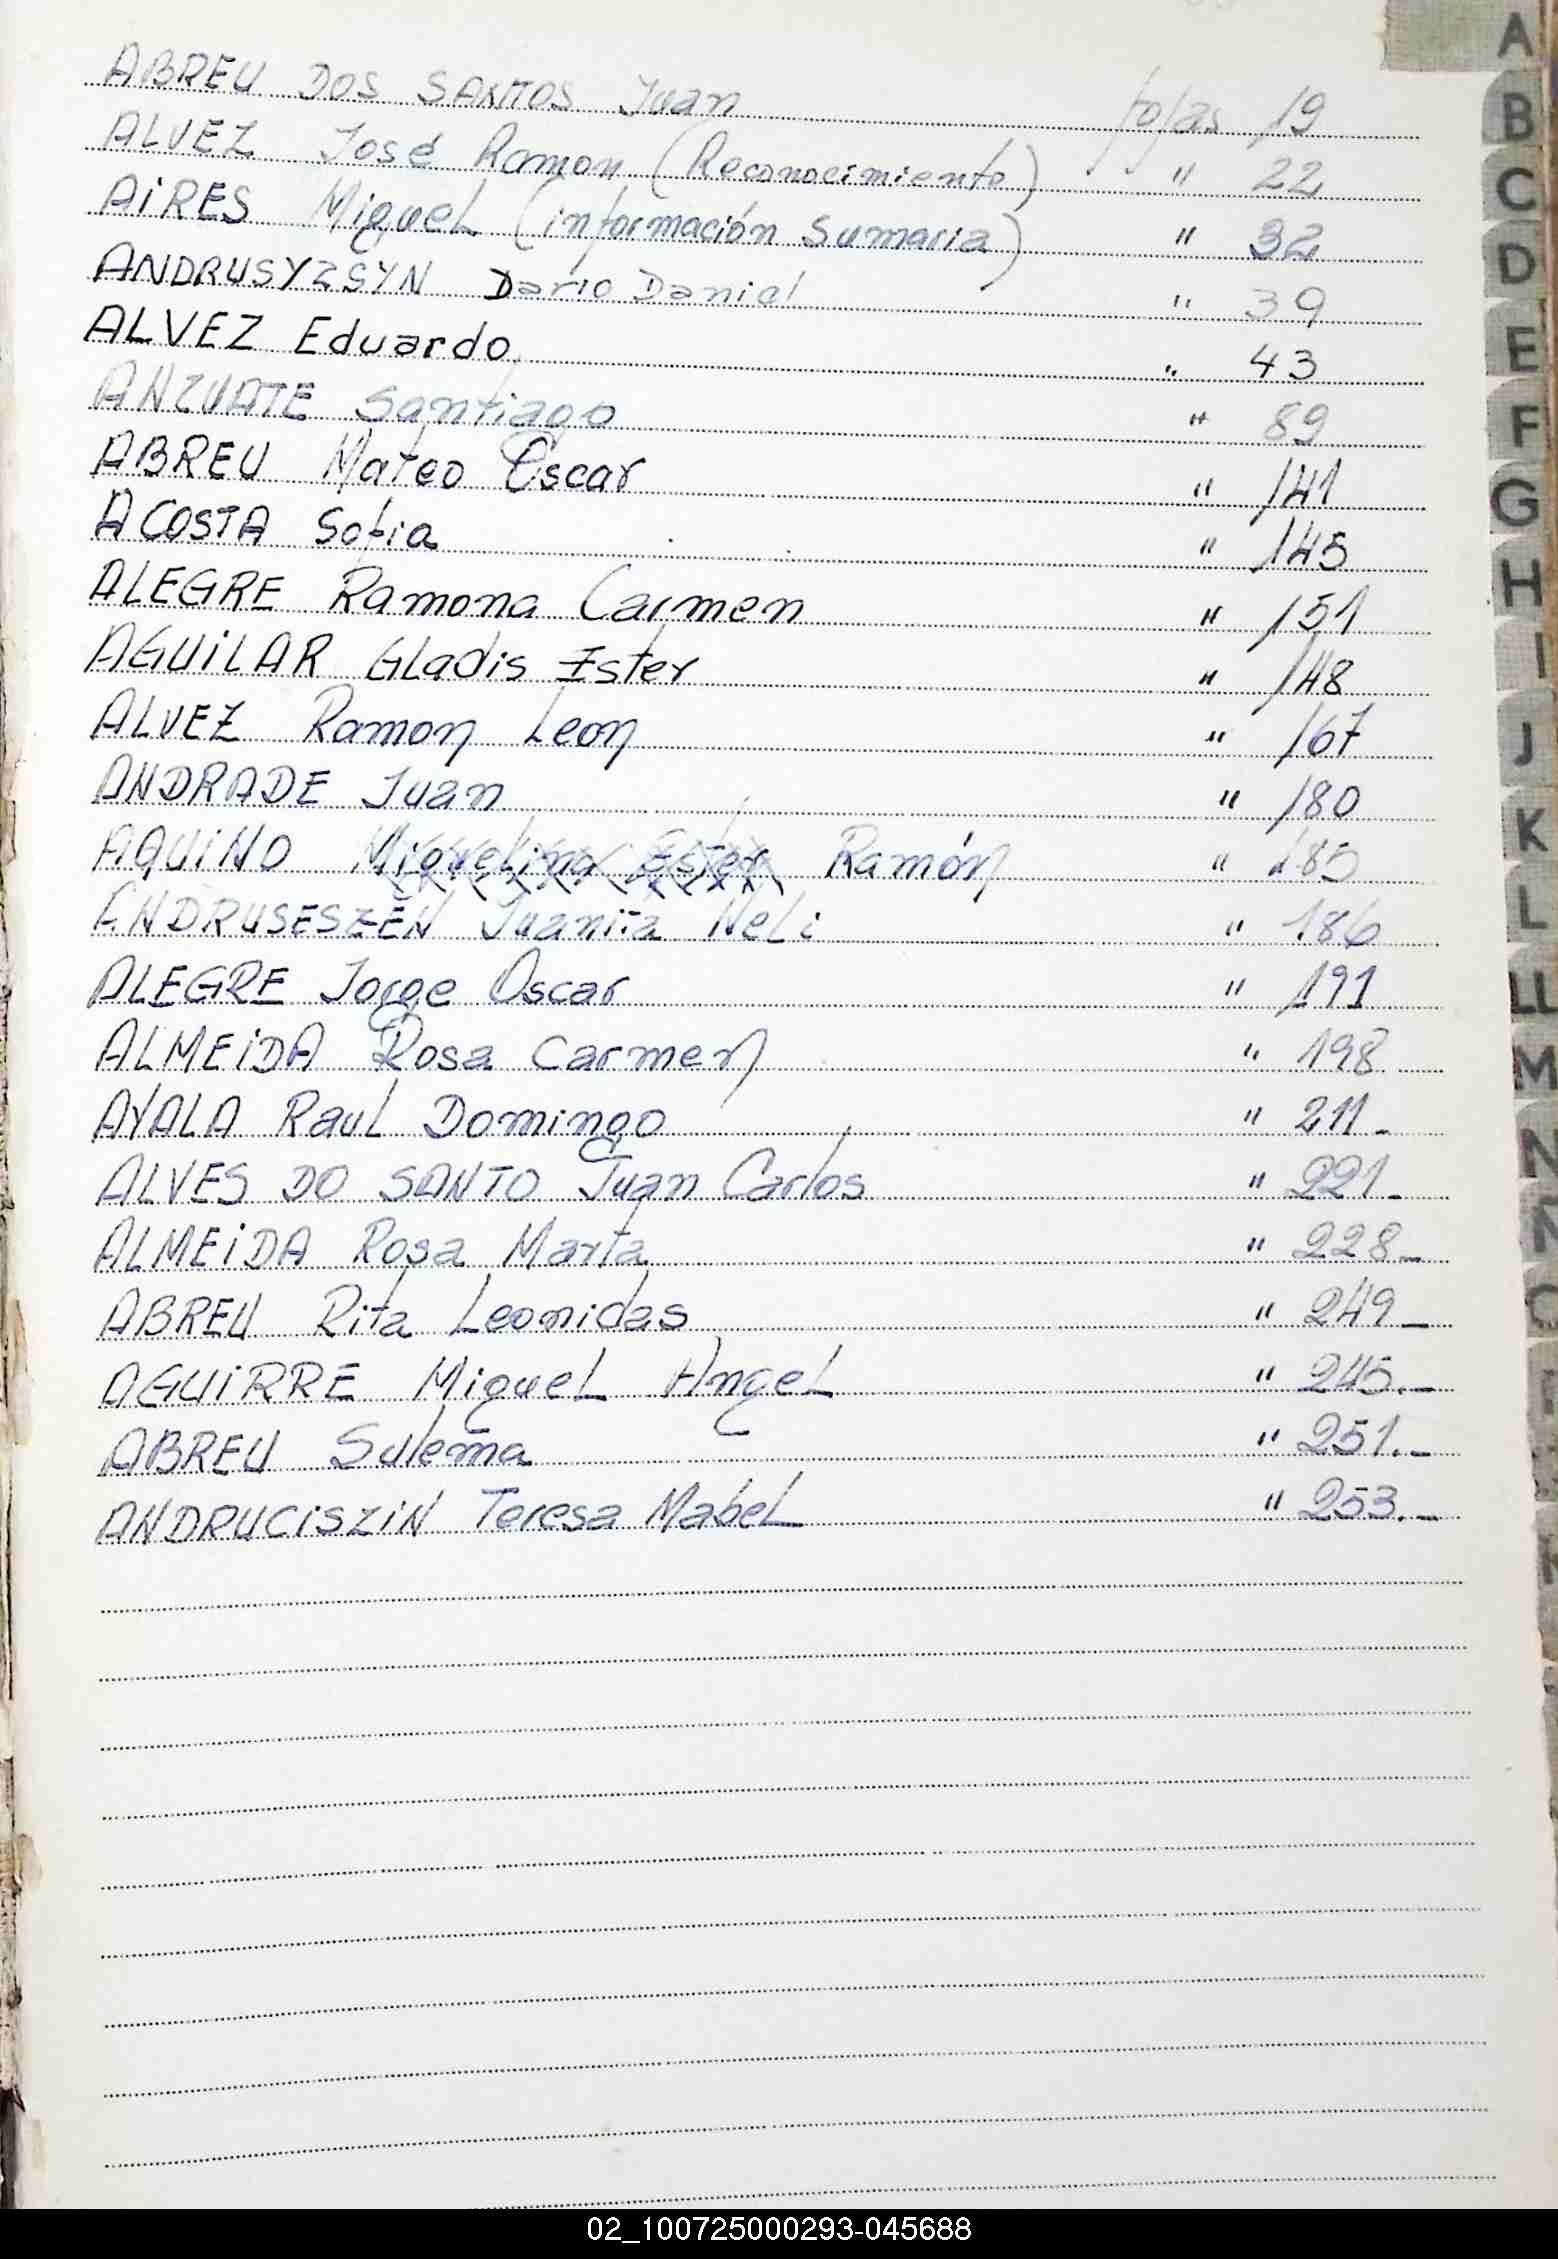 ABREU DOS SANTOS Juan fojas 19
ALVEZ José Ramon (Reconocimiento) " 22
AIRES Miguel (información sumaria) " 32
ANDRUSYZSYN Dario Daniel " 39
ALVEZ Eduardo " 43
ANZUATE Santiago " 89
ABREU Mateo Oscar " 141
ACOSTA Sofia " 145
ALEGRE Ramona Carmen " 151
AGUILAR Gladis Ester " 148
ALVEZ Ramon Leon " 167
ANDRADE Juan " 180
AQUINO Miguelina Ester Ramón " 185
ANDRUSESZEN Juanita Neli " 186
ALEGRE Jorge Oscar " 191
ALMEIDA Rosa Carmen " 198
AYALA Raul Domingo " 211_
ALVES DO SANTO Juan Carlos " 221_
ALMEIDA Rosa Marta " 228_
ABREU Rita Leonidas " 249_
AGUIRRE Miguel Angel " 245._
ABREU Sulema " 251._
ANDRUCISZIN Teresa Mabel " 253._
A
B
C
D
E
F
G
H
I
J
K
L
LL
M
N
02_100725000293-045688